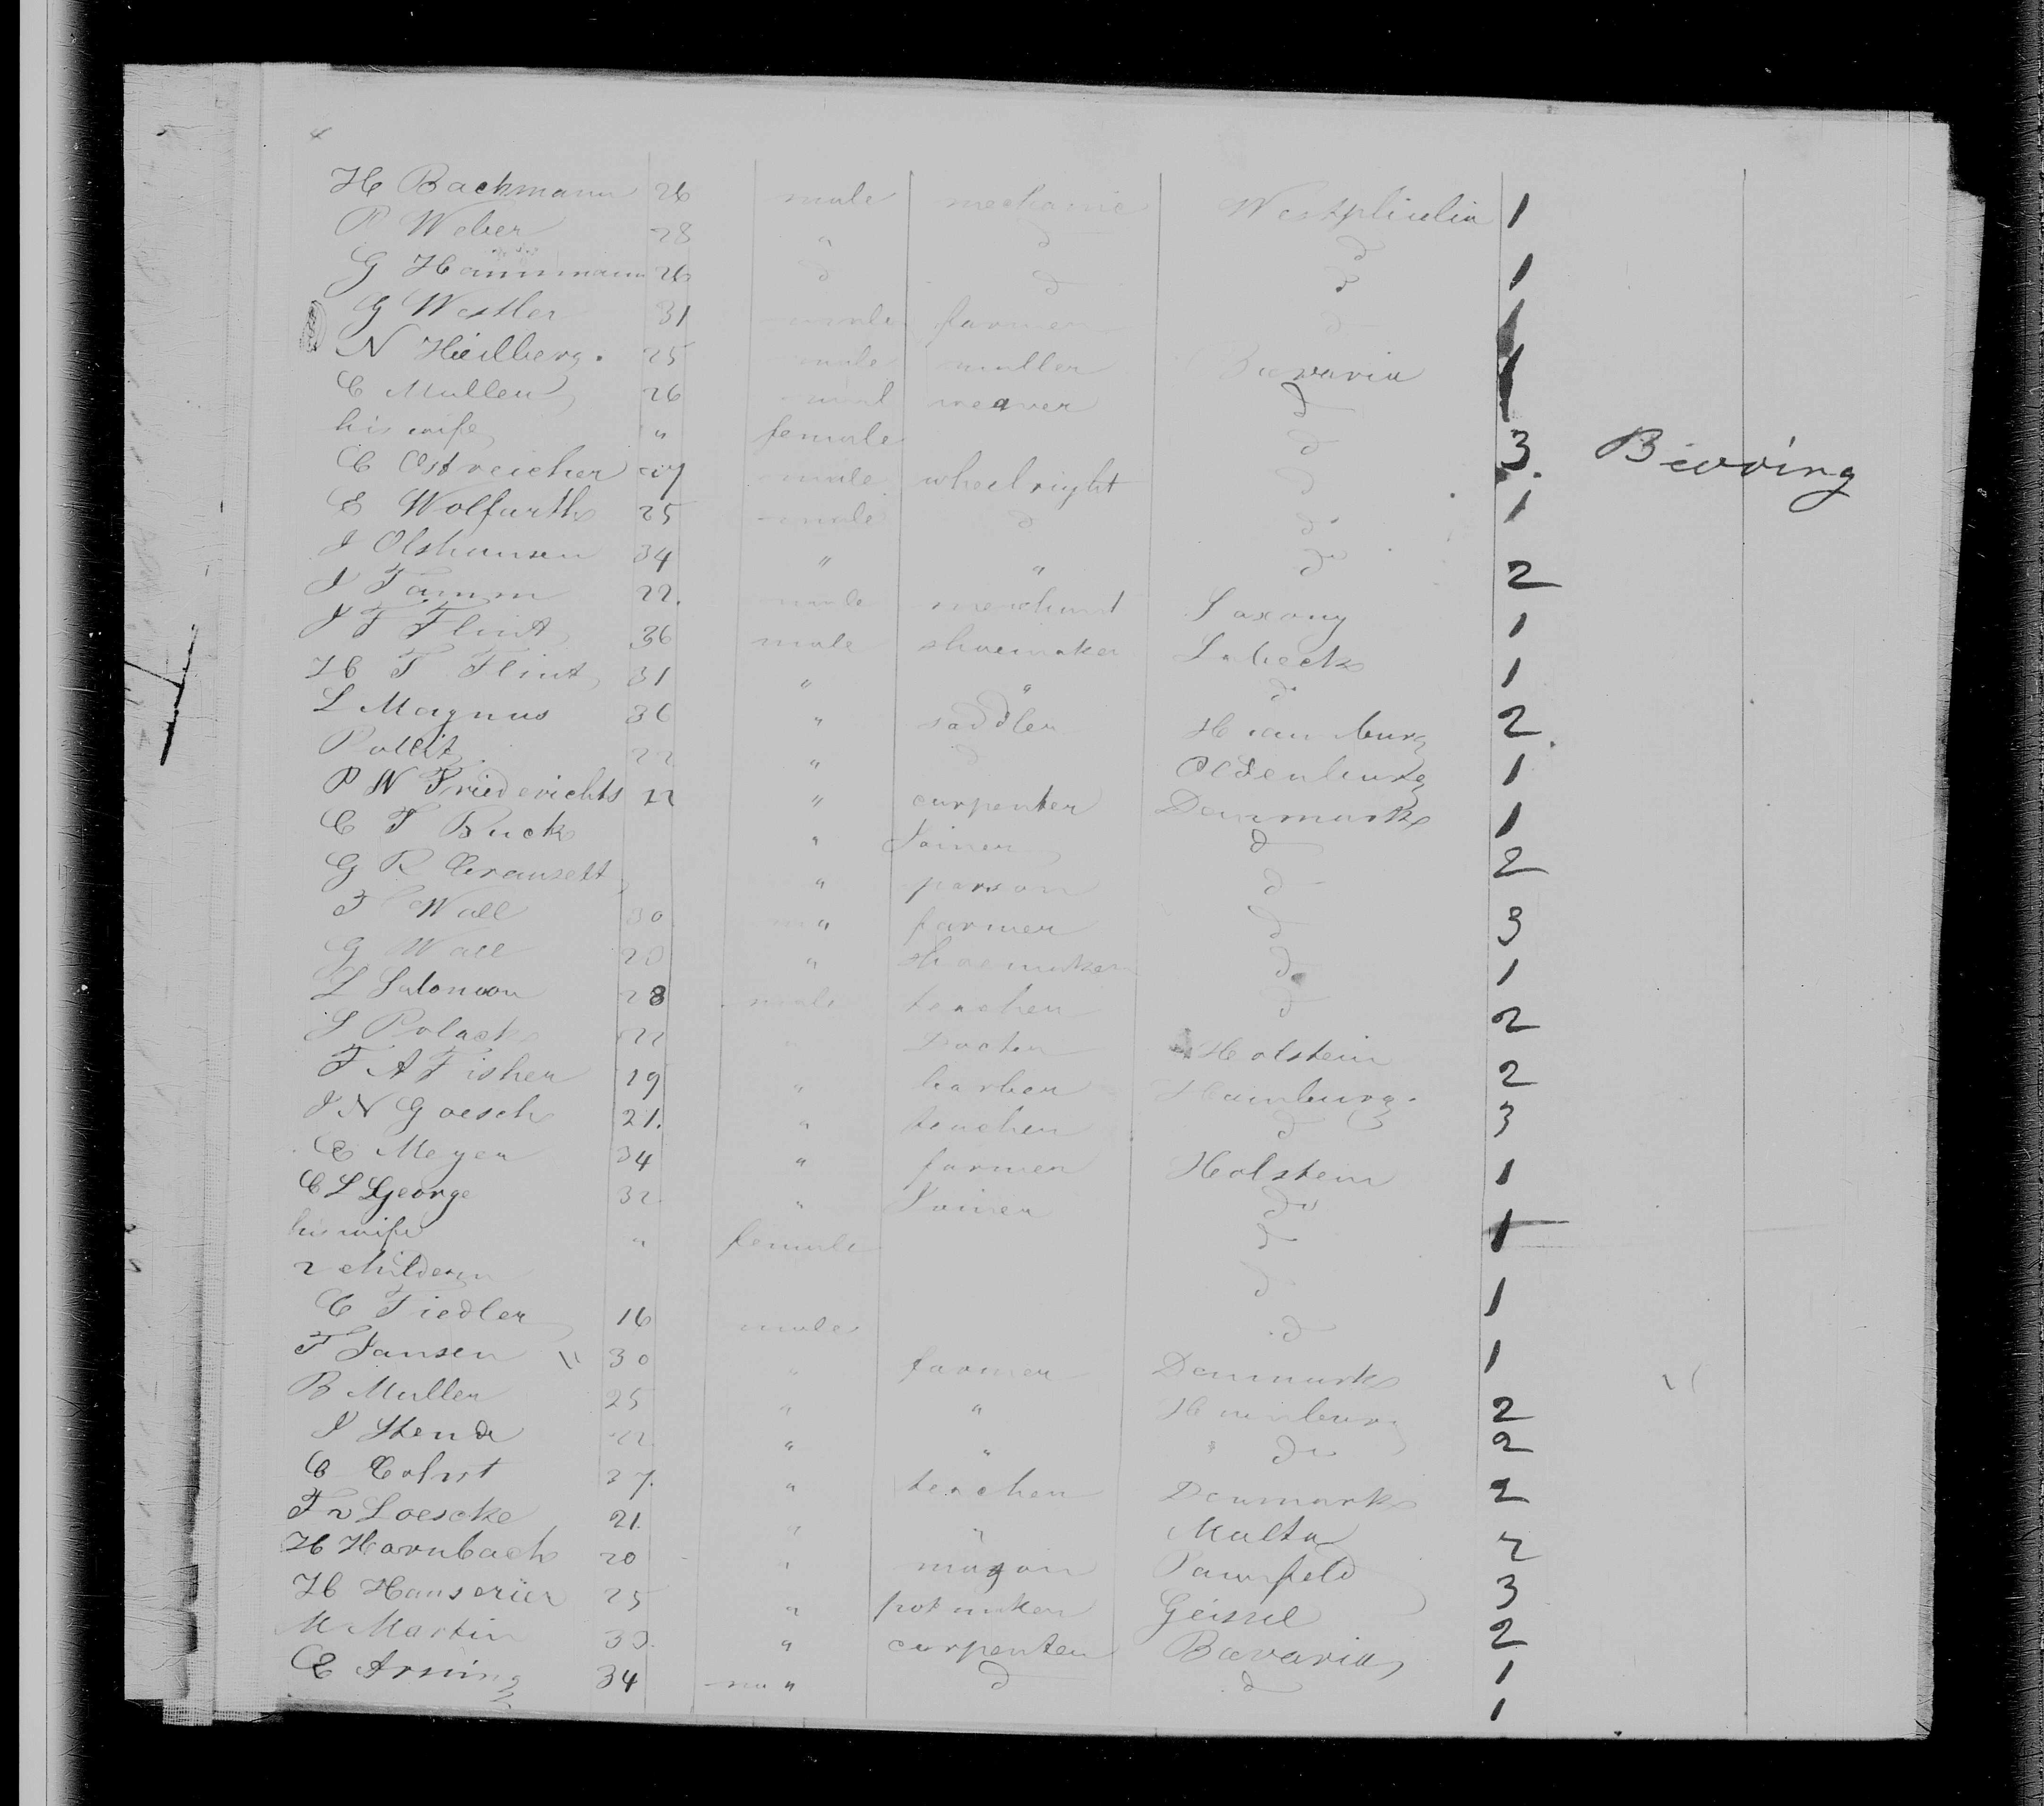 H Bachmann 26 male mechanic Westphlialia 1
P Weber 28 " d d
G Hammmann 26 d d d 1
G Westler 31 male farmer d 1
N Heilberg. 25 male muller Bavaria 1
C Muller 26 mal weaver d
his wife " female d 3. Bieving
C Ostreicher male wheelright d
E Wolfurth 25 male d do 1
J Olshausen 34 " " do 2
J Tamm 22. male merchant Saxony 1
J F Flint 36 male shoemaker Lubeck
H F Flint 31 " " do 1
L Magnus 36 " saddler Hamburg 2.
Pollitz 22 " d Oldenburg 1
P W Friederichts 22 " carpenter Denmark 1
C F Buck " Joiner d
G R Gransett " parson d 2
F Wall 30 " farmer d 3
G Wall 20 " Shoemaker d 1
L Salomon 28 male teacher d 2
S Polack 22 " Docter Holstein
F A Fisher 19 " barber Hamburg. 2
J N Goesch 21. " teacher d 3
C Meyer 34 " farmer Holstein 1
C L George 32 " Joiner do
his wife " female d 1
2 childern d
C Fiedler 16 male d 1
F Jansen 30 " farmer Denmark 1
B Muller 25 " " Hamburg 2
J Stende 22 " " do 2
C Cohst 37. " teacher Denmark 2
F v Loescke 21. " " Malta 2
H Hornbach 20 " mason
H Hanserier 25 " potmaker Geissel 3
M Martin 30. " carpenter Bavaria 2
E Arning 34 " d d 1
1